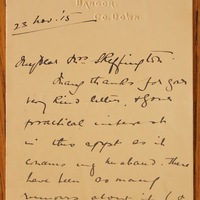 BANGOR
CO. DOWN
23 Nov. '15
My dear Mrs Skeffington
Many thanks for your
very kind letter, & your
practical interest
in this appt as it
concerns my husband. There
have been so many
rumours about it (&